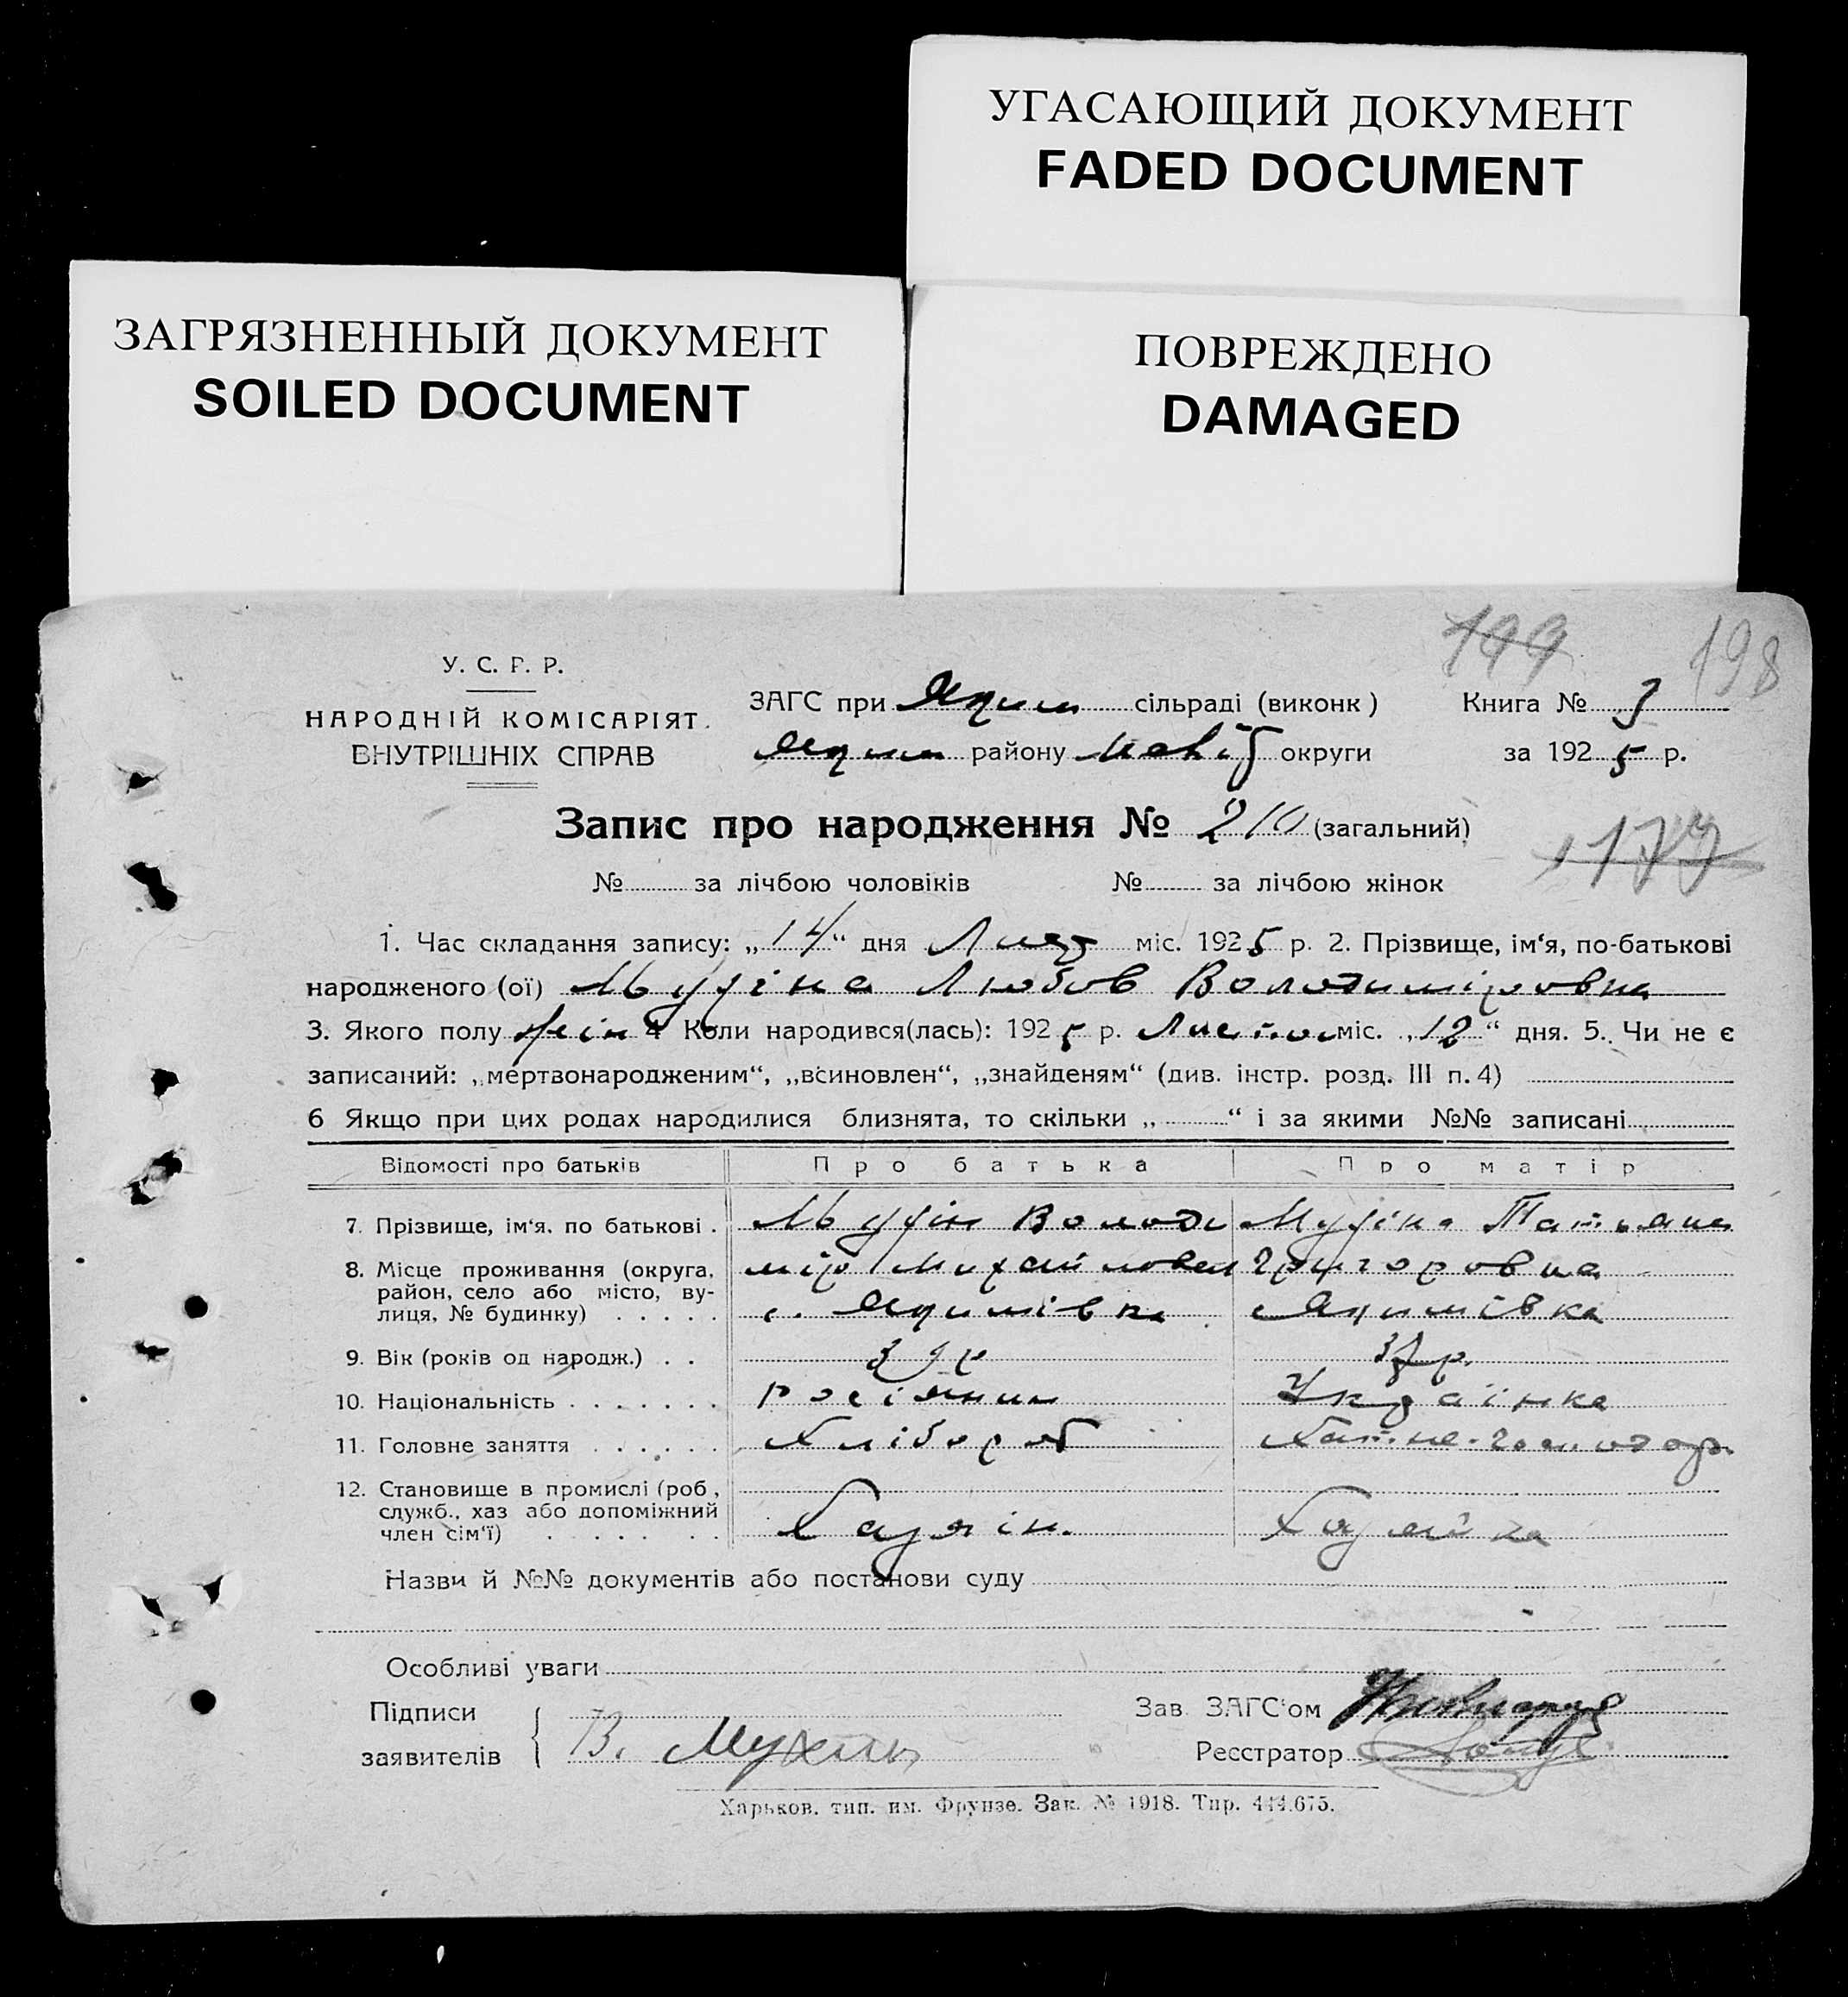 УГАСАЮЩИЙ ДОКУМЕНТ
FADED DOCUMENT
ЗАГРЯЗНЕННЫЙ ДОКУМЕНТ
SOILED DOCUMENT
ПОВРЕЖДЕНО
DAMAGED
199 198
У. С. Р. Р.
НАРОДНІЙ КОМІСАРІЯТ.
ВНУТРІШНІХ СПРАВ
ЗАГС при Яким сільраді (виконк) Книга № 3
Яким району Меліт округи за 1925 р.
Запис про народження № 210 (загальний)
177
№ за лічбою чоловіків № за лічбою жінок
1. Час складання запису: „14“ дня Лист міс. 1925 р. 2. Прізвище, ім‘я, по-батькові
народженого (ої) Мухіна Любов Володиміровна
3. Якого полу жін 4 Коли народився(лась): 1925 р. Листоп міс. „12“ дня. 5. Чи не є
записаний: „мертвонародженим“, „всиновлен“, „знайденям“ (див. інстр. розд. III п. 4)
6 Якщо при цих родах народилися близнята, то скільки „ “ і за якими №№ записані
Відомості про батьків Про батька Про матір
7. Прізвище, ім‘я, по батькові . Мухін Володи Мухіна Татьяна
8. Місце проживання (округа, мір Михайлович Григоровна
район, село або місто, ву-
лиця, № будинку) . . . . . с. Якимівка Якимівка
9. Вік (років од народж.) . . 39 р 37 р.
10. Національність . . . . . . . росіянин Українка
11. Головне заняття . . . . . . Хлібороб Хатне-господар.
12. Становище в промислі (роб,
служб., хаз або допоміжний
член сім‘ї) . . . . . . Хазяін. Хазяйка
Назви й №№ документів або постанови суду
Особливі уваги
Підписи Зав. ЗАГС‘ом
заявителів В. Мухин Реєстратор
Харьков. тип. им. Фрунзе. Зак. № 1918. Тир. 444.675.